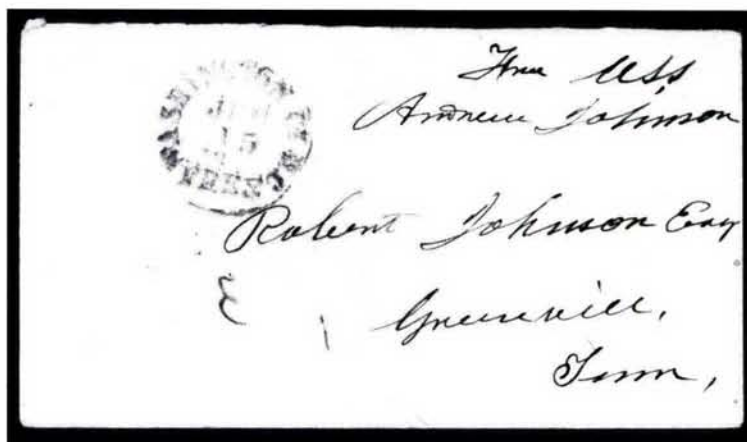 WASHINGTON
15
FREE
Free USS
Andrew Johnson
Robert Johnson Esq
Greenvill,
Tenn,